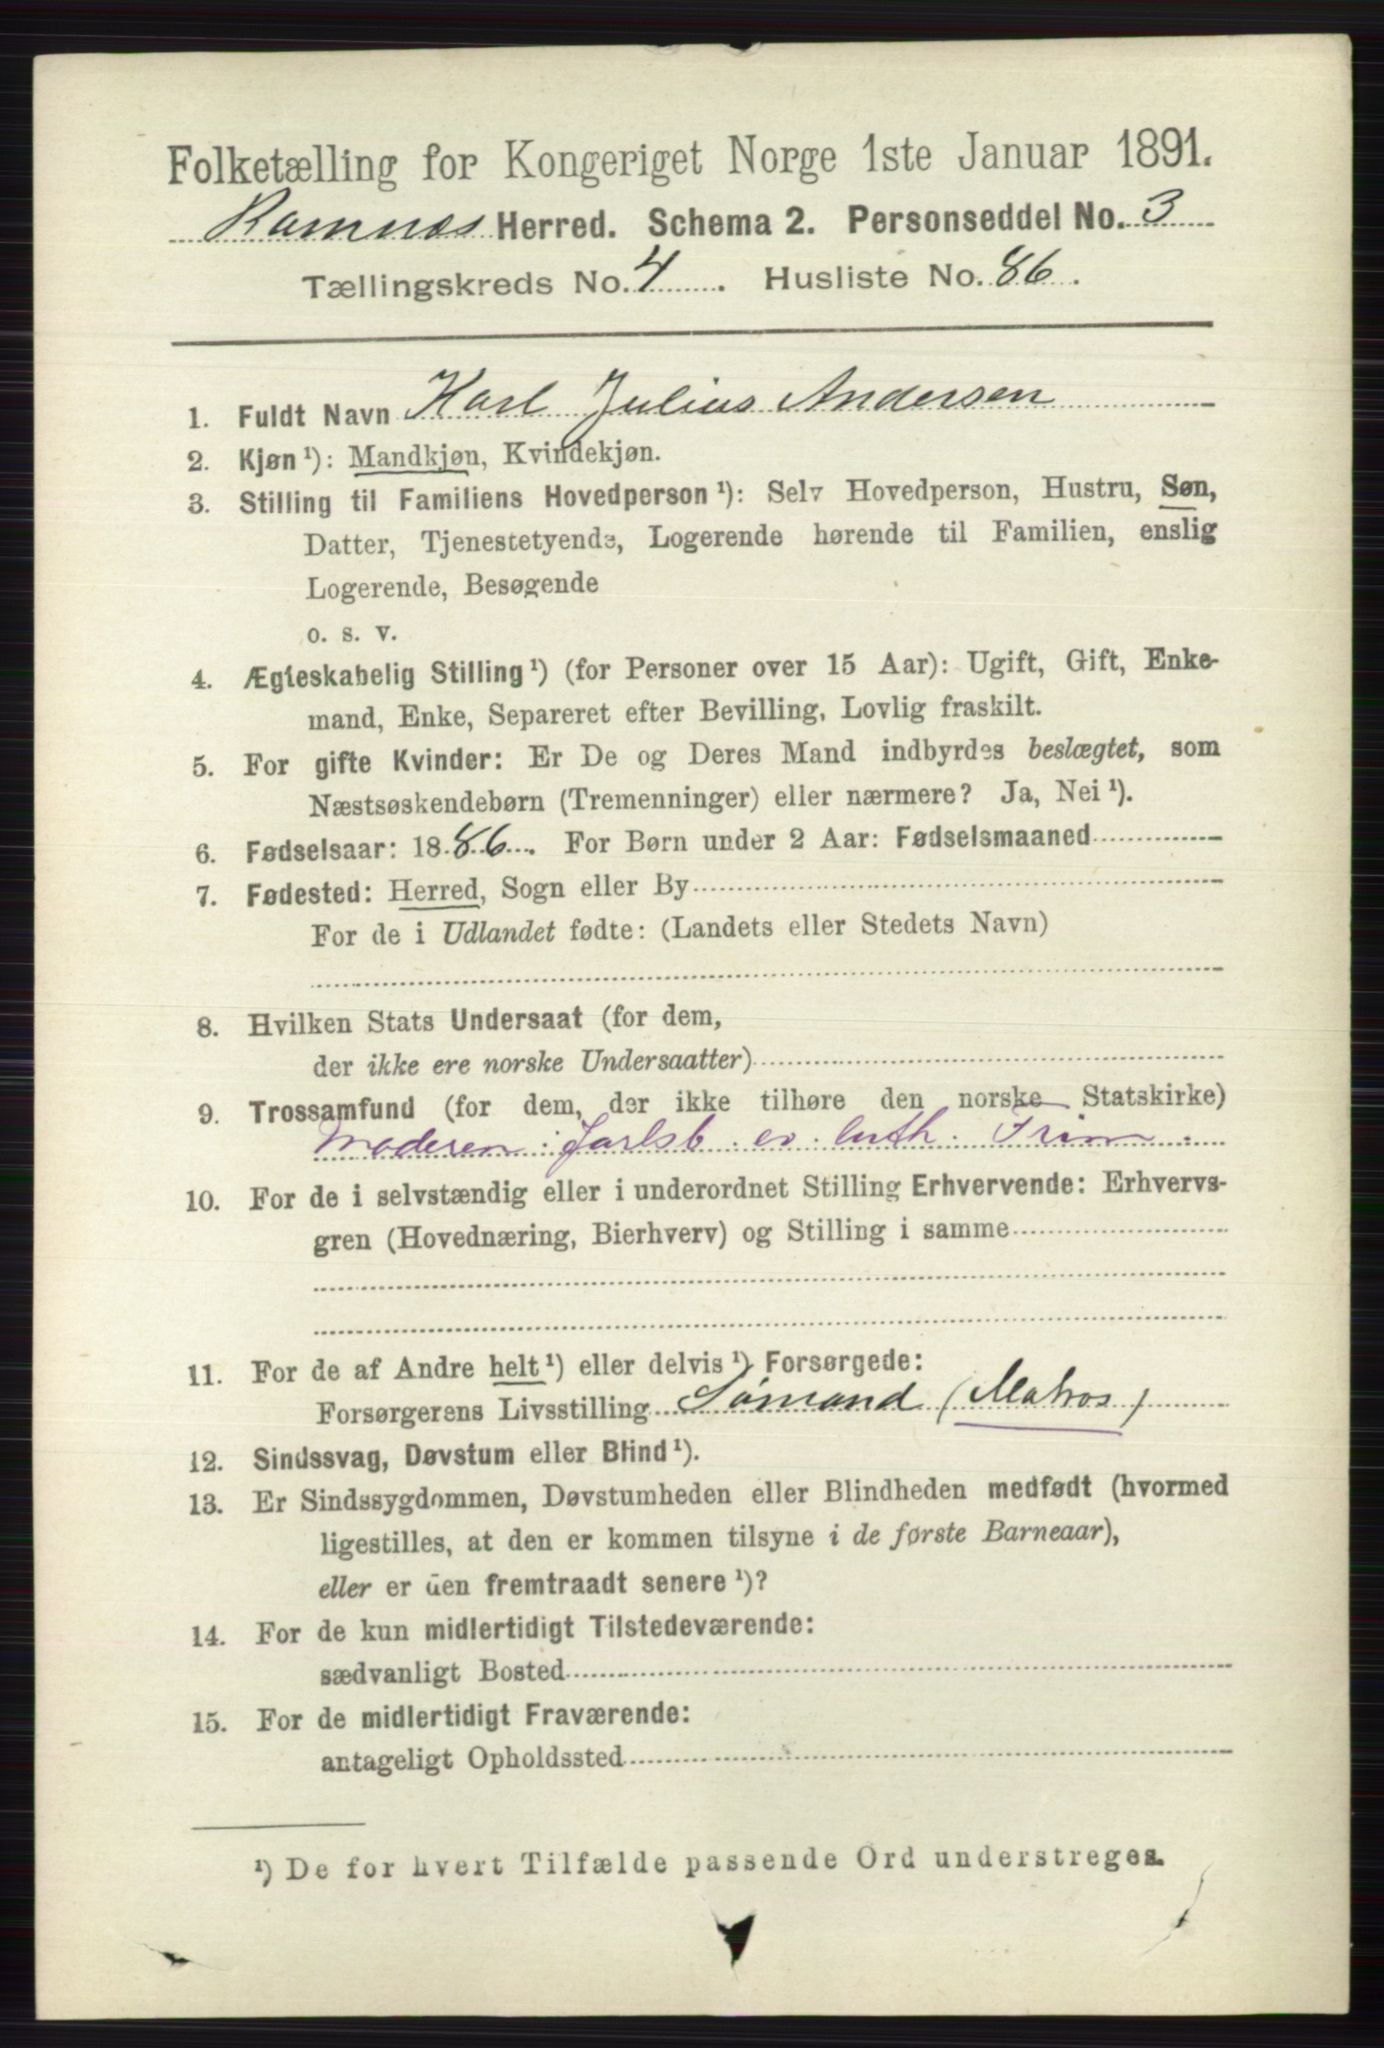 Folketælling for Kongeriget Norge 1ste Januar 1891.
Ramnæs Herred. Schema 2. Personseddel No. 3
Tællingskreds No. 4. Husliste No. 86.
1. Fuldt Navn Karl Julius Andersen
2. Kjøn ¹): Mandkjøn, Kvindekjøn.
3. Stilling til Familiens Hovedperson ¹): Selv Hovedperson, Hustru, Søn,
Datter, Tjenestetyende, Logerende hørende til Familien, enslig
Logerende, Besøgende
o. s. v.
4. Ægteskabelig Stilling ¹) (for Personer over 15 Aar): Ugift, Gift, Enke-
mand, Enke, Separeret efter Bevilling, Lovlig fraskilt.
5. For gifte Kvinder: Er De og Deres Mand indbyrdes beslægtet, som
Næstsøskendebørn (Tremenninger) eller nærmere? Ja, Nei ¹).
6. Fødselsaar: 1886. For Børn under 2 Aar: Fødselsmaaned
7. Fødested: Herred, Sogn eller By
For de i Udlandet fødte: (Landets eller Stedets Navn)
8. Hvilken Stats Undersaat (for dem,
der ikke ere norske Undersaatter)
9. Trossamfund (for dem, der ikke tilhøre den norske Statskirke)
Moderen: Jarlsb. ev. luth. Frim.
10. For de i selvstændig eller i underordnet Stilling Erhvervende: Erhvervs-
gren (Hovednæring, Bierhverv) og Stilling i samme
11. For de af Andre helt ¹) eller delvis ¹) Forsørgede:
Forsørgerens Livsstilling Sømand (Matros)
12. Sindssvag, Døvstum eller Blind ¹).
13. Er Sindssygdommen, Døvstumheden eller Blindheden medfødt (hvormed
ligestilles, at den er kommen tilsyne i de første Barneaar),
eller er den fremtraadt senere ¹)?
14. For de kun midlertidigt Tilstedeværende:
sædvanligt Bosted
15. For de midlertidigt Fraværende:
antageligt Opholdssted
¹) De for hvert Tilfælde passende Ord understreges.